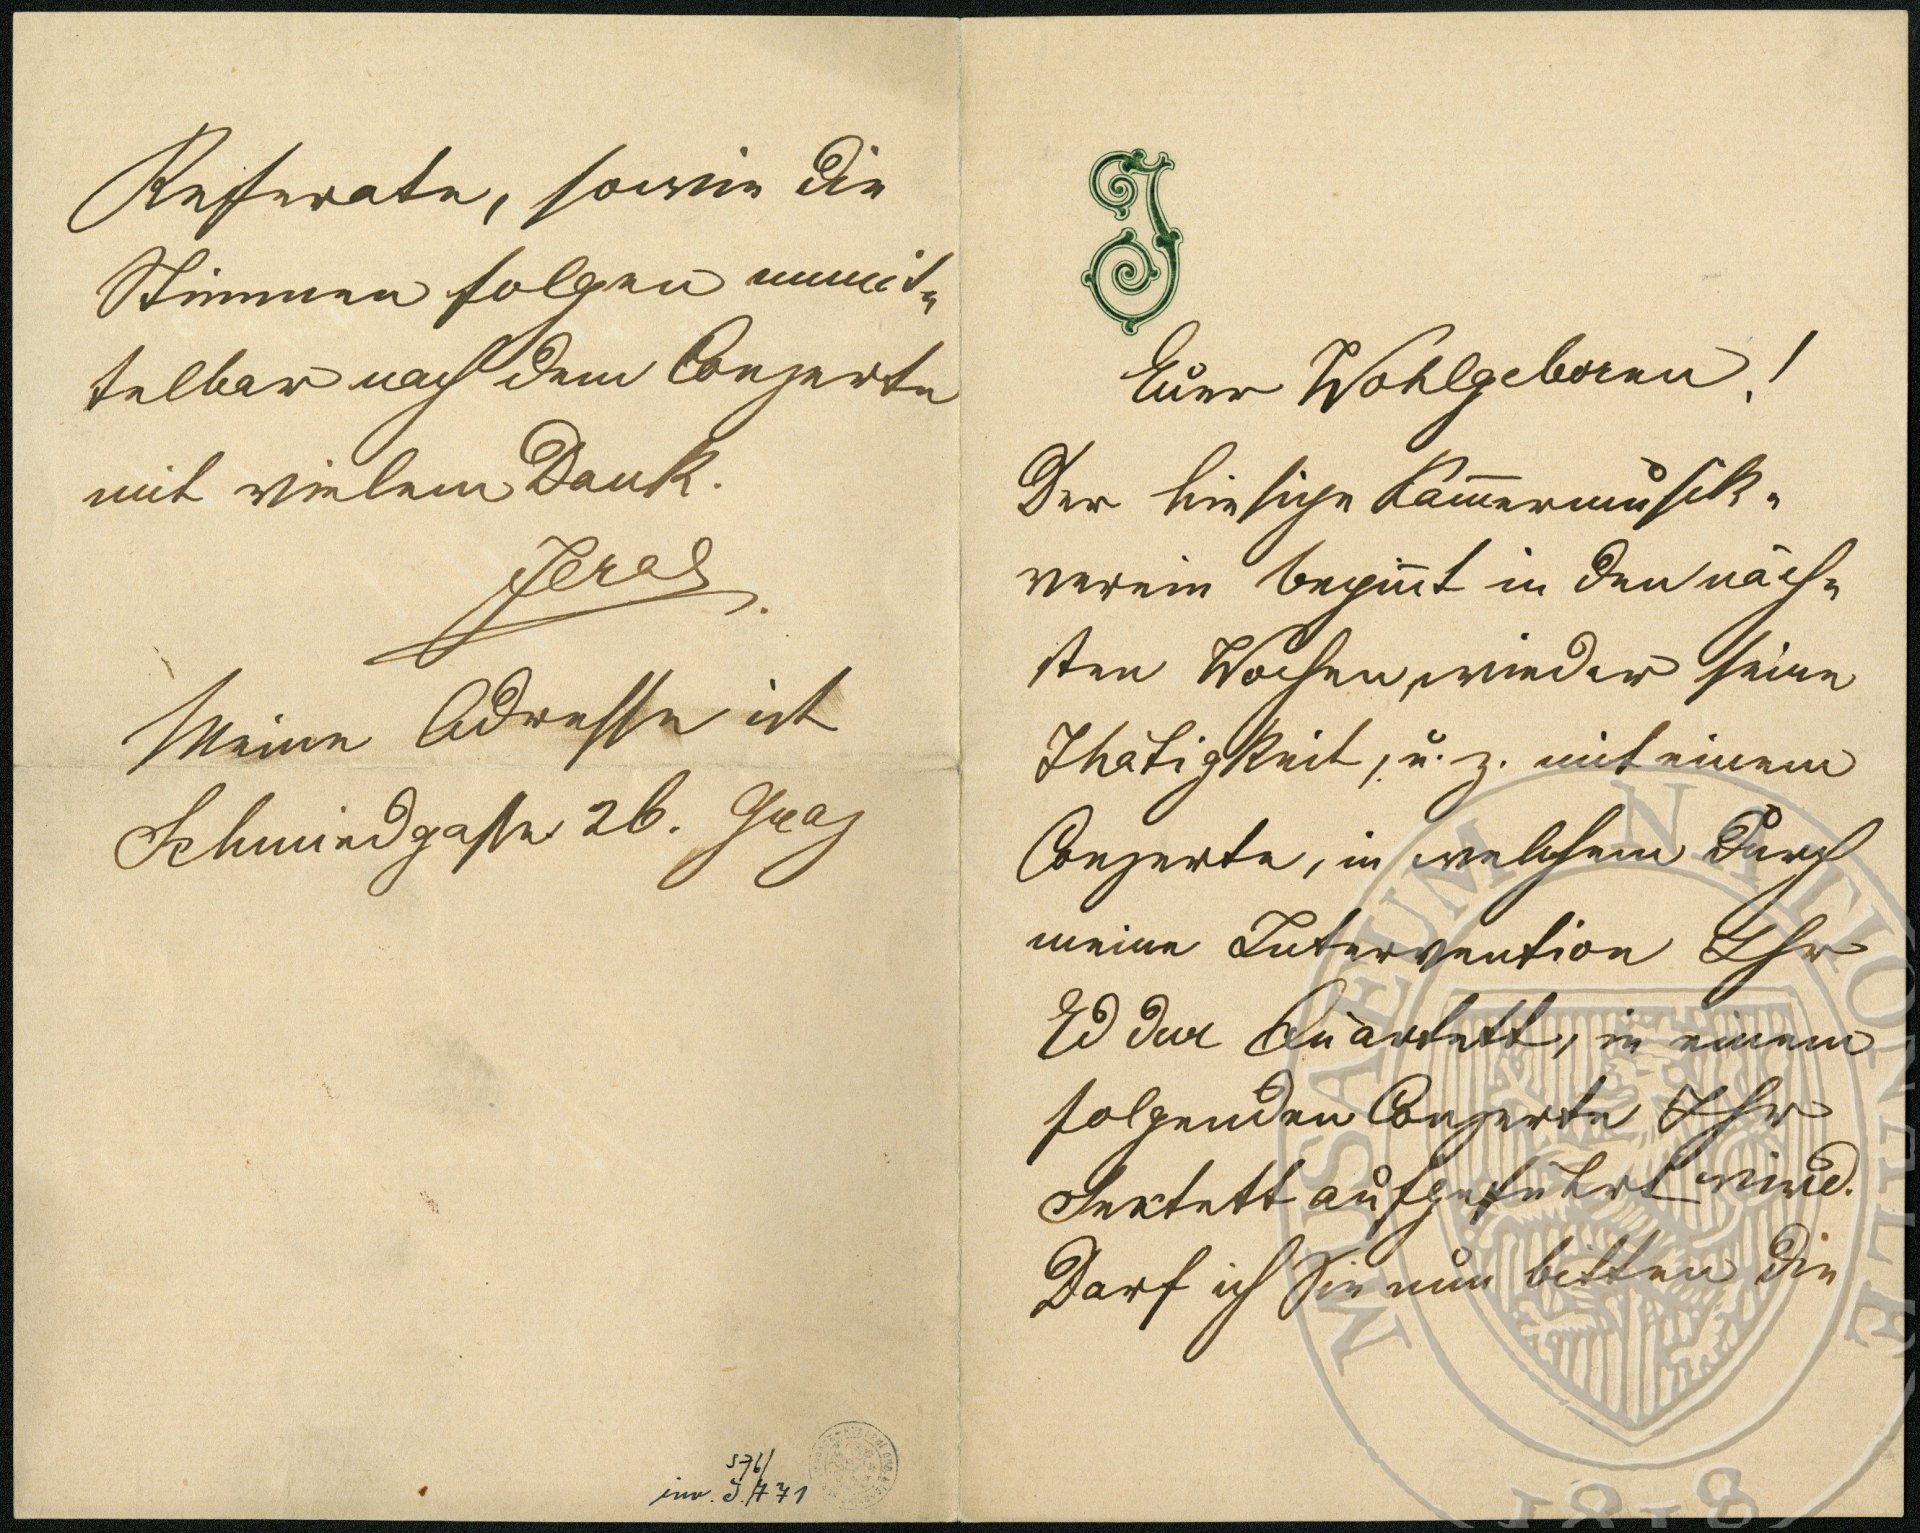 J
Euer Wohlgeboren!
Der hiesige Kam̅ermusik-
verein begin̅t in den näch-
sten Wochen wieder seine
Thätigkeit, u. z. mit einem
Conzerte, in welchem durch
meine Intervention Ihr
Es dur Quartett, in einem
folgenden Conzerte Ihr
Sextett aufgeführt wird.
Darf ich Sie nun bitten die
Refferate, sowie die
Stimmen folgen unmit-
telbar nach dem Conzerte
mit vielem Dank.
Meine Adresse ist
Schmiedgasse 26. Graz
576/
inv. J. 771
MUSAEUM NATIONALE
1818